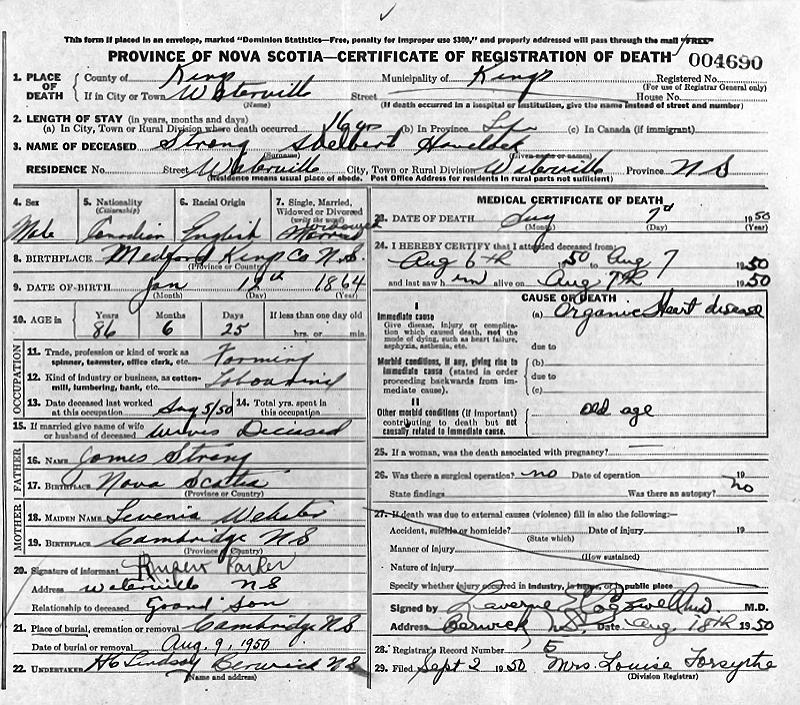 This form if placed in an envelope, marked "Dominion Statistics—Free, penalty for improper use $300," and properly addressed will pass through the mail "FREE"
PROVINCE OF NOVA SCOTIA—CERTIFICATE OF REGISTRATION OF DEATH 004690
1. PLACE OF DEATH County of Kings Municipality of Kings Registered No.
(For use of Registrar General only)
If in City or Town Waterville Street House No.
(Name) (If death occurred in a hospital or institution, give the name instead of street and number)
2. LENGTH OF STAY (in years, months and days)
(a) In City, Town or Rural Division where death occurred 16 yrs (b) In Province Life (c) In Canada (if immigrant)
3. NAME OF DECEASED Strong Havelock
(Surname) (Given name or names)
RESIDENCE No. Street Waterville City, Town or Rural Division Waterville Province N S
(Residence means usual place of abode. Post Office Address for residents in rural parts not sufficient)
4. Sex 5. Nationality (Citizenship) 6. Racial Origin 7. Single, Married, Widowed or Divorced (write the word)
Male Canadian English Widowed Married
8. BIRTHPLACE Medford Kings Co N.S.
(Province or Country)
9. DATE OF BIRTH Jan 12th 1864
(Month) (Day) (Year)
10. AGE in Years Months Days If less than one day old
86 6 25 hrs. or min.
OCCUPATION
11. Trade, profession or kind of work as spinner, teamster, office clerk, etc. Farming
12. Kind of industry or business, as cotton-mill, lumbering, bank, etc. Labouring
13. Date deceased last worked at this occupation Aug 5/50 14. Total yrs. spent in this occupation
15. If married give name of wife or husband of deceased Deceased
FATHER
16. NAME James Strong
17. BIRTHPLACE Nova Scotia
(Province or Country)
MOTHER
18. MAIDEN NAME Levenia Webster
19. BIRTHPLACE Cambridge N S
(Province or Country)
20. Signature of informant Rupert Parker
Address Waterville N S
Relationship to deceased Grand Son
21. Place of burial, cremation or removal Cambridge N S
Date of burial or removal Aug. 9, 1950
22. UNDERTAKER H C Lindsay Berwick N S
(Name and address)
MEDICAL CERTIFICATE OF DEATH
23. DATE OF DEATH Aug 7th 1950
(Month) (Day) (Year)
24. I HEREBY CERTIFY that I attended deceased from:
Aug 6th 1950 to Aug 7 1950
and last saw him alive on Aug 7th 1950
CAUSE OF DEATH
I
Immediate cause (a) Organic Heart disease
Give disease, injury or complication which caused death, not the mode of dying, such as heart failure, asphyxia, asthenia, etc.
due to
Morbid conditions, if any, giving rise to immediate cause (stated in order proceeding backwards from immediate cause).
(b)
due to
(c)
II
Other morbid conditions (if important) contributing to death but not causally related to immediate cause.
Old age
25. If a woman, was the death associated with pregnancy?
26. Was there a surgical operation? no Date of operation 19
State findings Was there an autopsy? no
27. If death was due to external causes (violence) fill in also the following:—
Accident, suicide or homicide? Date of injury 19
(State which)
Manner of injury
(How sustained)
Nature of injury
Specify whether injury occurred in industry, in home, or in public place
Signed by M.D.
Address Berwick N.S. Date Aug 18th 1950
28. Registrar's Record Number 5
29. Filed Sept 2 1950 Mrs. Louise Forsythe
(Division Registrar)